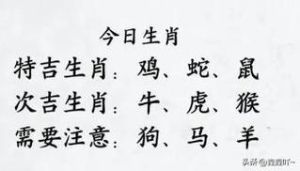 今日生肖
特吉生肖：鸡、蛇、鼠
次吉生肖：牛、虎、猴
需要注意：狗、马、羊